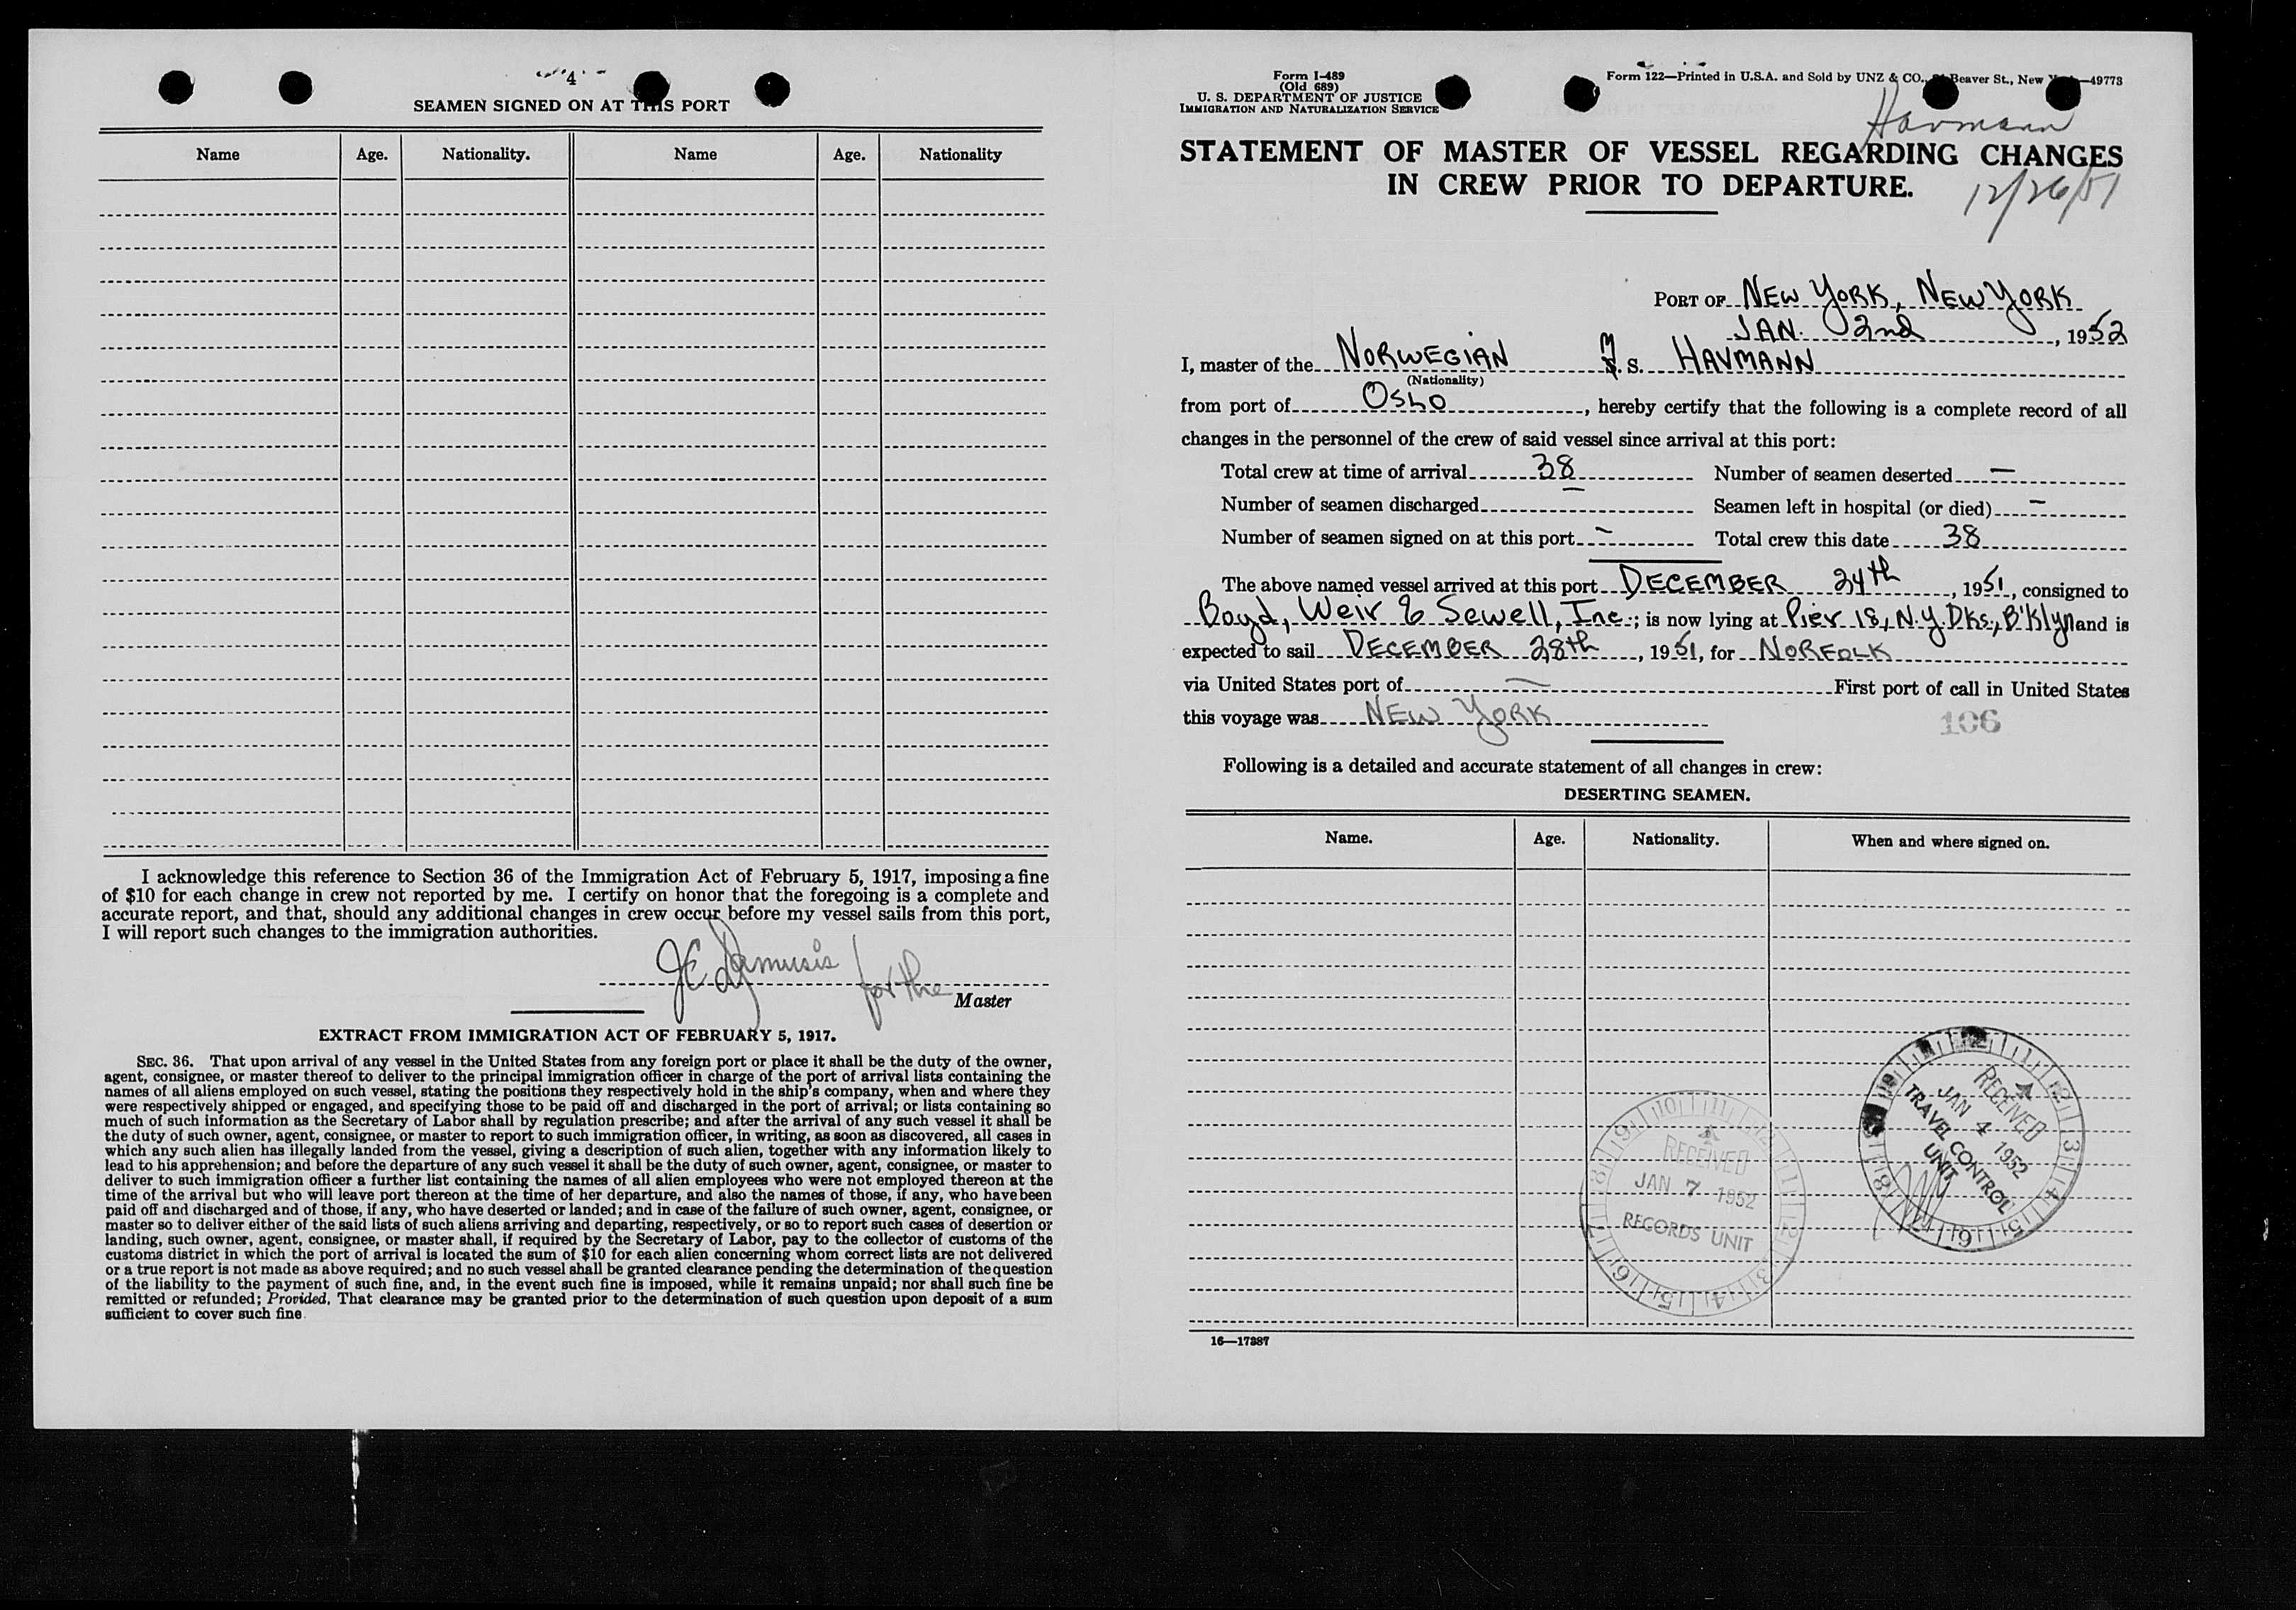 4
SEAMEN SIGNED ON AT THIS PORT
Name Age. Nationality. Name Age. Nationality
I acknowledge this reference to Section 36 of the Immigration Act of February 5, 1917, imposing a fine
of $10 for each change in crew not reported by me. I certify on honor that the foregoing is a complete and
accurate report, and that, should any additional changes in crew occur before my vessel sails from this port,
I will report such changes to the immigration authorities.
for the
Master
EXTRACT FROM IMMIGRATION ACT OF FEBRUARY 5, 1917.
SEC. 36. That upon arrival of any vessel in the United States from any foreign port or place it shall be the duty of the owner,
agent, consignee, or master thereof to deliver to the principal immigration officer in charge of the port of arrival lists containing the
names of all aliens employed on such vessel, stating the positions they respectively hold in the ship's company, when and where they
were respectively shipped or engaged, and specifying those to be paid off and discharged in the port of arrival; or lists containing so
much of such information as the Secretary of Labor shall by regulation prescribe; and after the arrival of any such vessel it shall be
the duty of such owner, agent, consignee, or master to report to such immigration officer, in writing, as soon as discovered, all cases in
which any such alien has illegally landed from the vessel, giving a description of such alien, together with any information likely to
lead to his apprehension; and before the departure of any such vessel it shall be the duty of such owner, agent, consignee, or master to
deliver to such immigration officer a further list containing the names of all alien employees who were not employed thereon at the
time of the arrival but who will leave port thereon at the time of her departure, and also the names of those, if any, who have been
paid off and discharged and of those, if any, who have deserted or landed; and in case of the failure of such owner, agent, consignee, or
master so to deliver either of the said lists of such aliens arriving and departing, respectively, or so to report such cases of desertion or
landing, such owner, agent, consignee, or master shall, if required by the Secretary of Labor, pay to the collector of customs of the
customs district in which the port of arrival is located the sum of $10 for each alien concerning whom correct lists are not delivered
or a true report is not made as above required; and no such vessel shall be granted clearance pending the determination of the question
of the liability to the payment of such fine, and, in the event such fine is imposed, while it remains unpaid; nor shall such fine be
remitted or refunded; Provided, That clearance may be granted prior to the determination of such question upon deposit of a sum
sufficient to cover such fine.
Form I-489
(Old 689)
U. S. DEPARTMENT OF JUSTICE
IMMIGRATION AND NATURALIZATION SERVICE
Form 122—Printed in U.S.A. and Sold by UNZ & CO., Beaver St., New —49773
Havmann
STATEMENT OF MASTER OF VESSEL REGARDING CHANGES
IN CREW PRIOR TO DEPARTURE.
12/26/51
PORT OF NEW YORK, NEW YORK
JAN. 2nd, 1952
I, master of the NORWEGIAN M. S. HAVMANN
(Nationality)
from port of OSLO, hereby certify that the following is a complete record of all
changes in the personnel of the crew of said vessel since arrival at this port:
Total crew at time of arrival 38 Number of seamen deserted —
Number of seamen discharged — Seamen left in hospital (or died) —
Number of seamen signed on at this port — Total crew this date 38
The above named vessel arrived at this port DECEMBER 24th, 1951, consigned to
Boyd, Weir & Sewell, Inc.; is now lying at Pier 18, N.Y. Dks., B'klyn and is
expected to sail DECEMBER 28th, 1951, for NORFOLK
via United States port of — First port of call in United States
this voyage was NEW YORK
106
Following is a detailed and accurate statement of all changes in crew:
DESERTING SEAMEN.
Name. Age. Nationality. When and where signed on.
RECEIVED
JAN 4 1952
TRAVEL CONTROL
UNIT
RECEIVED
JAN 7 1952
RECORDS UNIT
16—17387